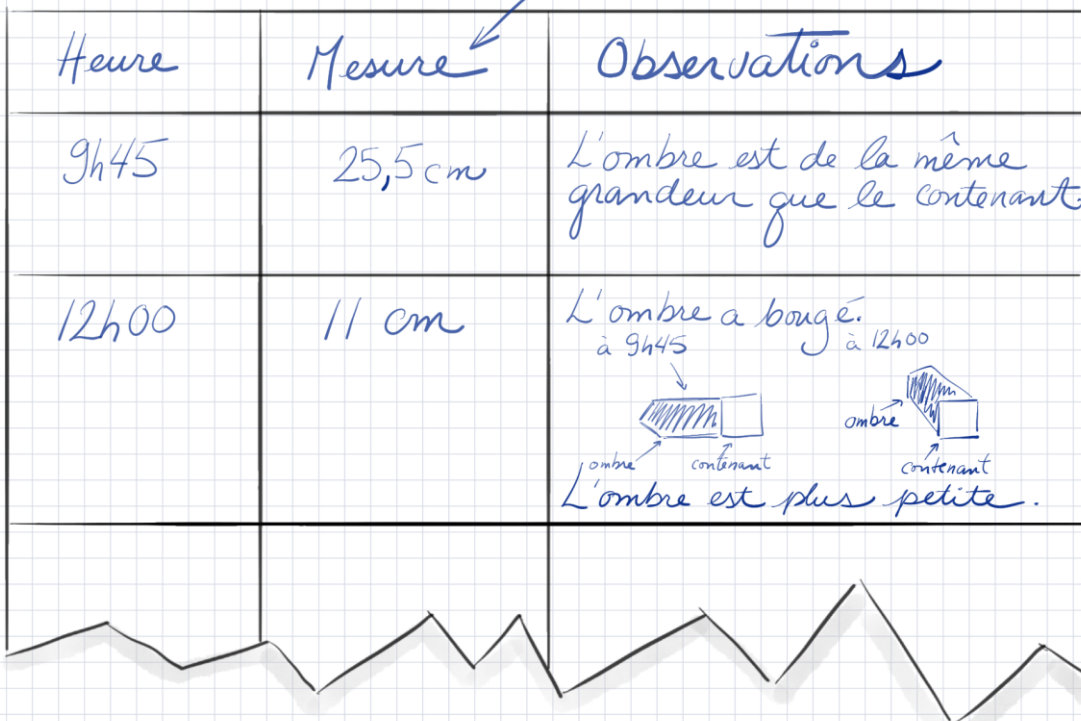 Heure Mesure Observations
9h45 25,5 cm L'ombre est de la même
grandeur que le contenant.
12h00 11 cm L'ombre a bougé.
à 9h45 à 12h00
ombre
ombre contenant contenant
L'ombre est plus petite.